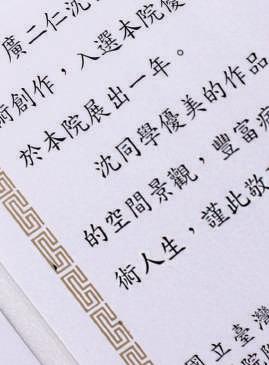 廣二仁沈
術創作，入選本院優
於本院展出一年。
沈同學優美的作品
的空間景觀，豐富病
術人生，謹此敬
國立臺灣